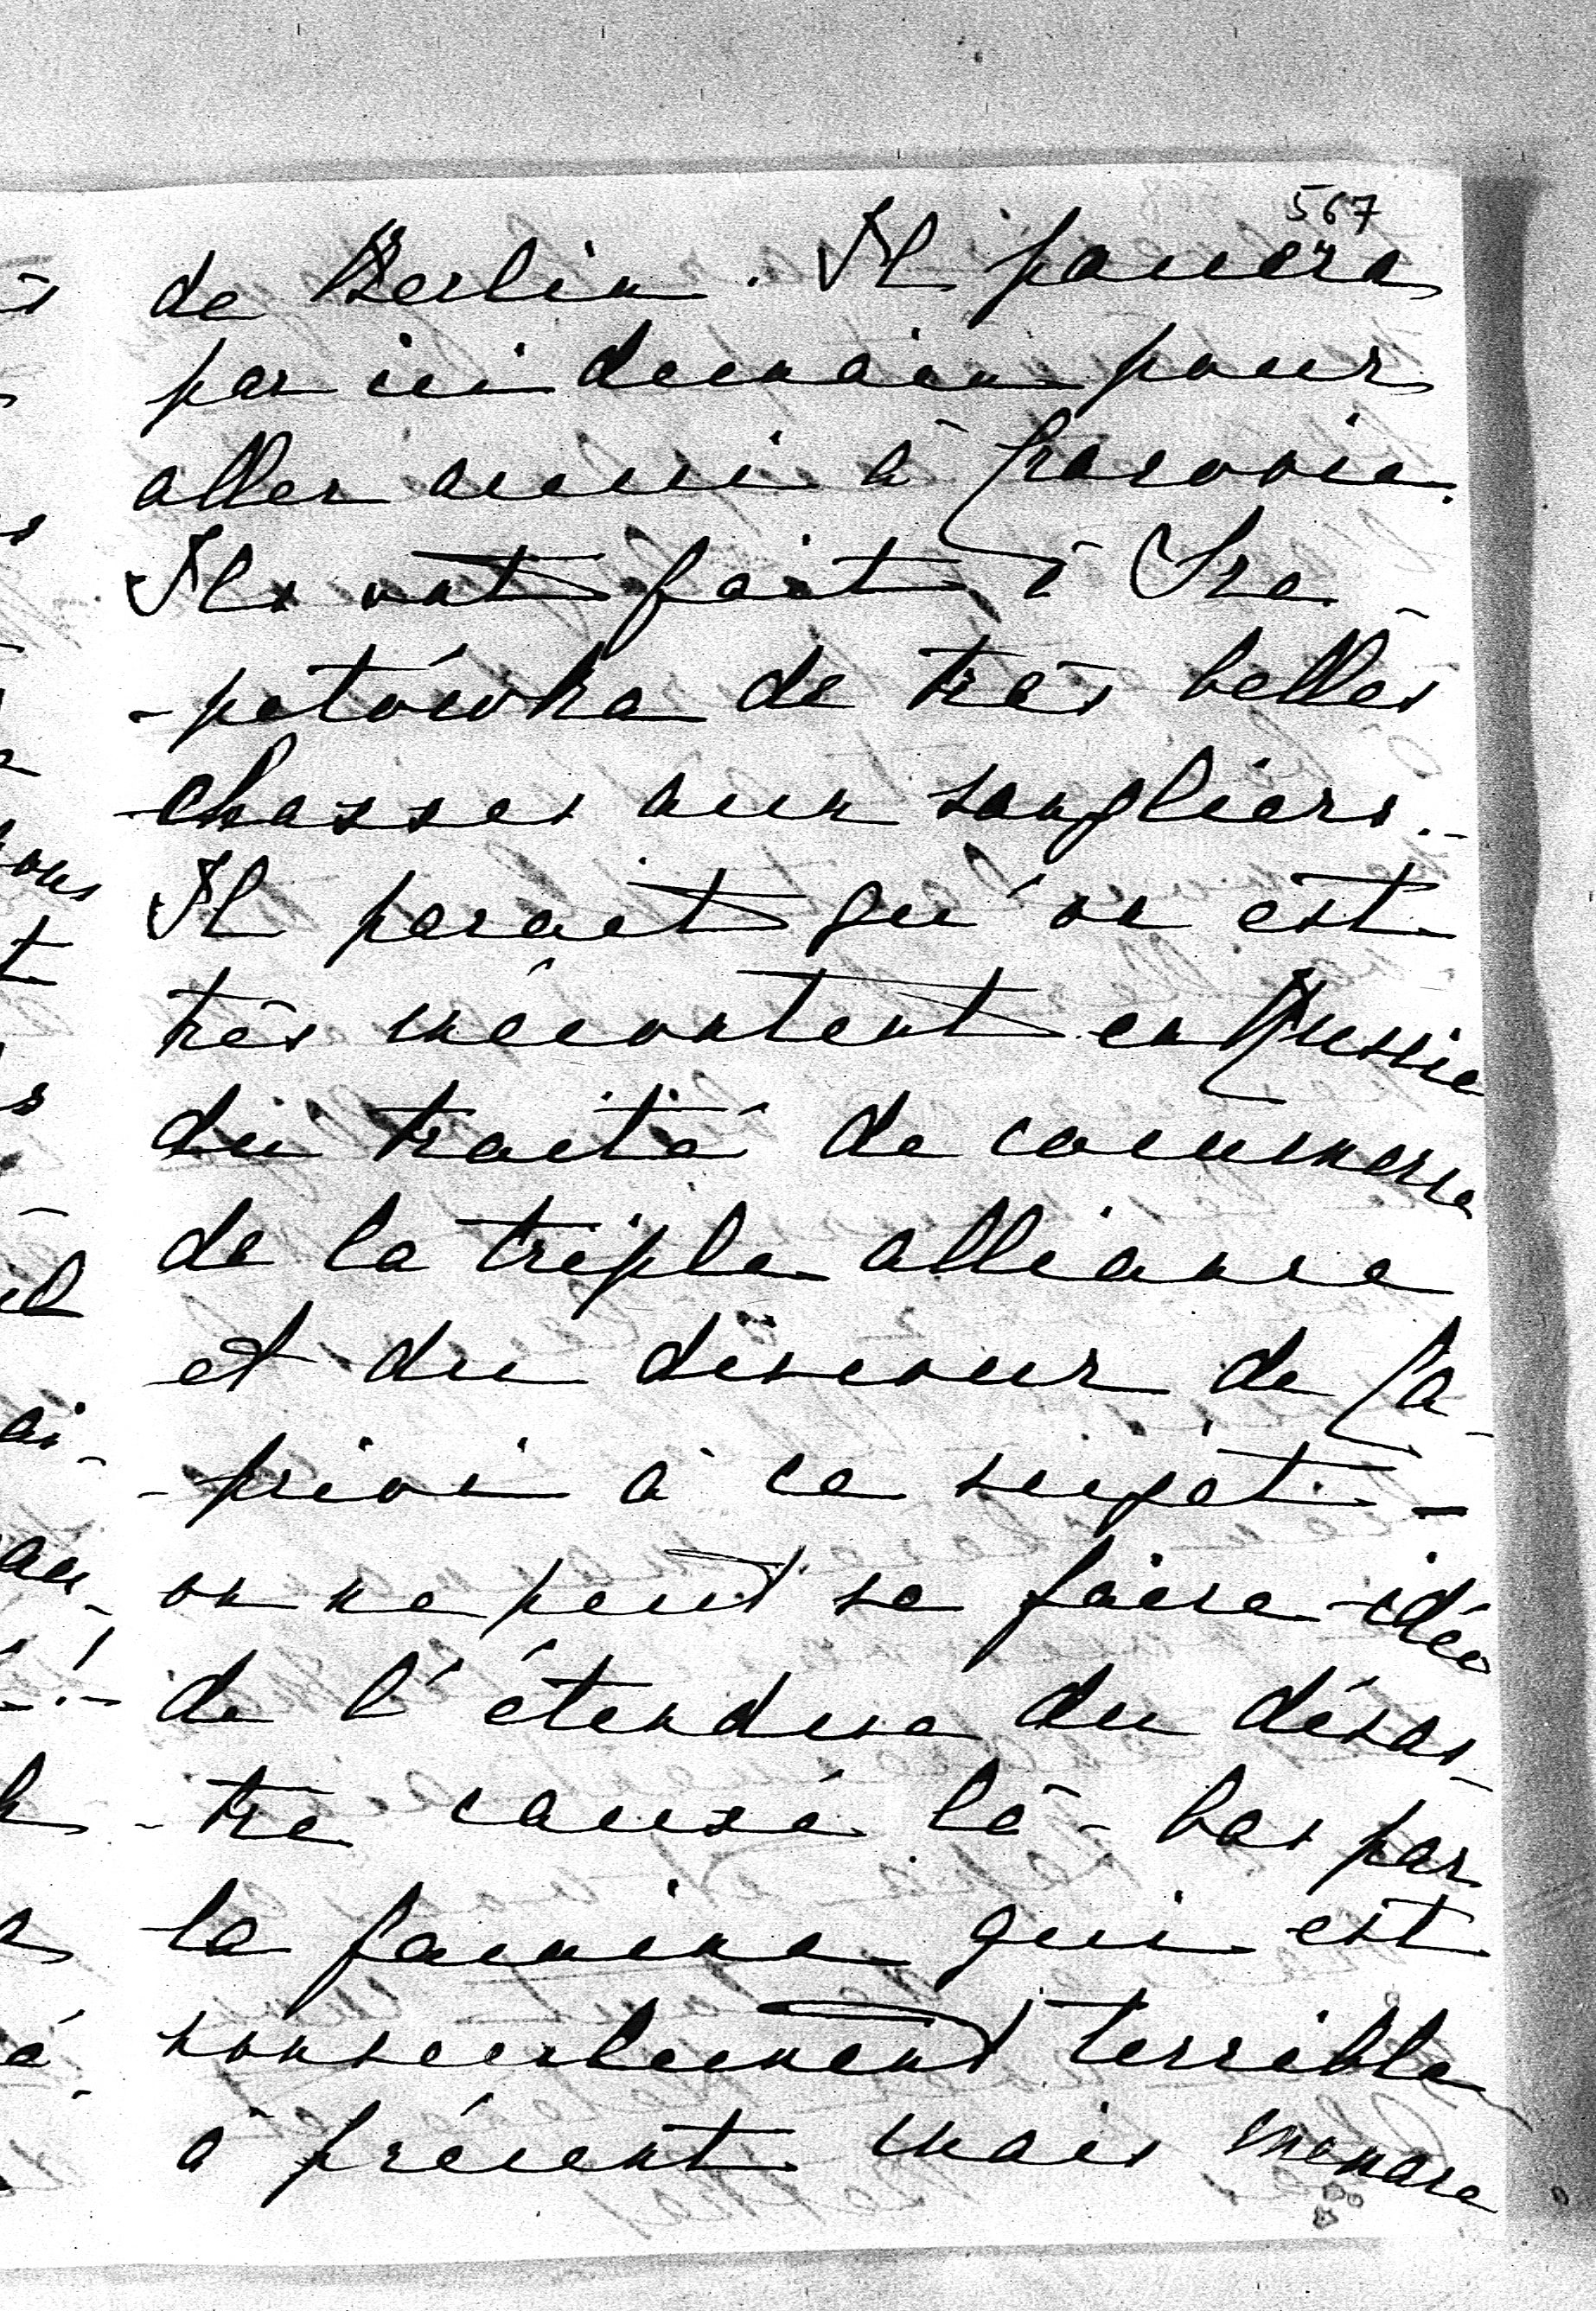 567
de Berlin. Il passera
par ici demain pour
aller aussi à Cracovie.
Ils ont fait à Sze-
-petówka de très belles
chasses aux sangliers.-
Il parait qu'on est
très mécontent en Russie
du traité de commerce
de la triple alliance
et du discours de Ca-
-privi à ce sujet -
on ne peut se faire idée
de l'étendue du désas-
-tre causé là-bas par
la famine qui est
nonseulement terrible
à présent mais menace